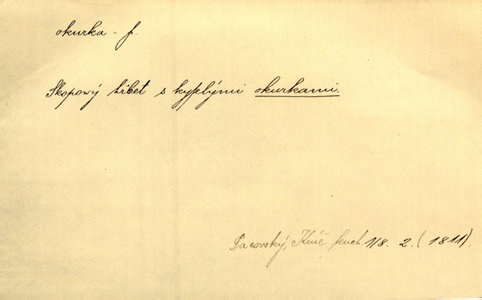 okurka - f.
Skopowý hřbet s kyselými okurkami.
Pacovský, Kniž. kuch. 118. 2. (1811)